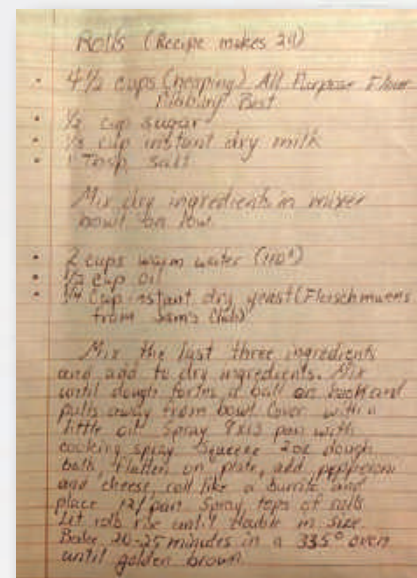 Rolls (Recipe makes 24)
• 4 1/2 cups (heaping) All Purpose Flour
Pillsbury Best
• 1/2 cup sugar
• 1/3 cup instant dry milk
• 1 Tbsp salt
Mix dry ingredients in mixer
bowl on low.
• 2 cups warm water (110°)
• 1/2 cup oil
• 1/4 cup instant dry yeast (Fleischmanns
from Sam's Club)
Mix the last three ingredients
and add to dry ingredients. Mix
until dough forms a ball on hook and
pulls away from bowl. Cover with a
little oil. Spray 9x13 pan with
cooking spray. Squeeze 2oz dough
balls, flatten on plate, add pepperoni
and cheese, roll like a burrito and
place 12/pan. Spray tops of rolls
Let rolls rise until double in size.
Bake 20-25 minutes in a 335° oven
until golden brown.